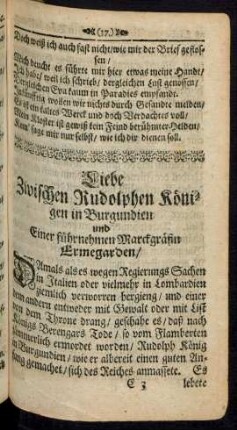 (17.)
Doch weiß ich auch fast nicht/ wie mir der Brief geflos-
sen/
Mich deucht es führte mir hier etwas meine Handt/
Ich habe/ weil ich schrieb/ dergleichen Lust genossen/
Dergleichen Eva kaum in Paradies empfandt.
wollen wir nichts durch Gesandte melden/
Es ist ein kaltes Werck und doch Verdachtes voll/
Mein Kloster ist gewiß kein Feind berühmter Helden/
Kom/ sage mir nur selbst/ wie ich dir dienen soll.
Liebe
Zwischen Rudolphen Köni-
gen in Burgundien
und
Einer führnehmen Marckgräfin
Ermegarden/
DAmals als es wegen Regierungs Sachen
in Italien oder vielmehr in Lombardien
ziemlich verworren hergieng/ und einer
dem andern entweder mit Gewalt oder mit List
von dem Throne drang/ geschahe es/ daß nach
Königs Berengars Tode/ so vom Flamberten
jämmerlich ermordet worden/ Rudolph König
in Burgundien/ wie er albereit einen guten An-
fang gemachet/ sich des Reiches anmassete. Es
C 3 lebete